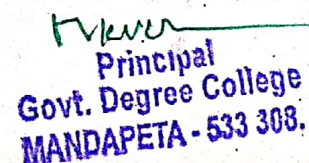 Principal
Govt. Degree College
MANDAPETA - 533 308.